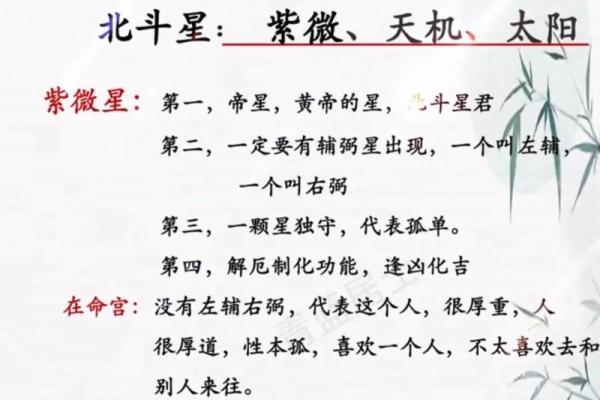 北斗星： 紫微、天机、太阳
紫微星：第一，帝星，黄帝的星，北斗星君
第二，一定要有辅弼星出现，一个叫左辅，
一个叫右弼
第三，一颗星独守，代表孤单。
第四，解厄制化功能，逢凶化吉
在命宫：没有左辅右弼，代表这个人，很厚重，人
很厚道，性本孤，喜欢一个人，不太喜欢去和
别人来往。